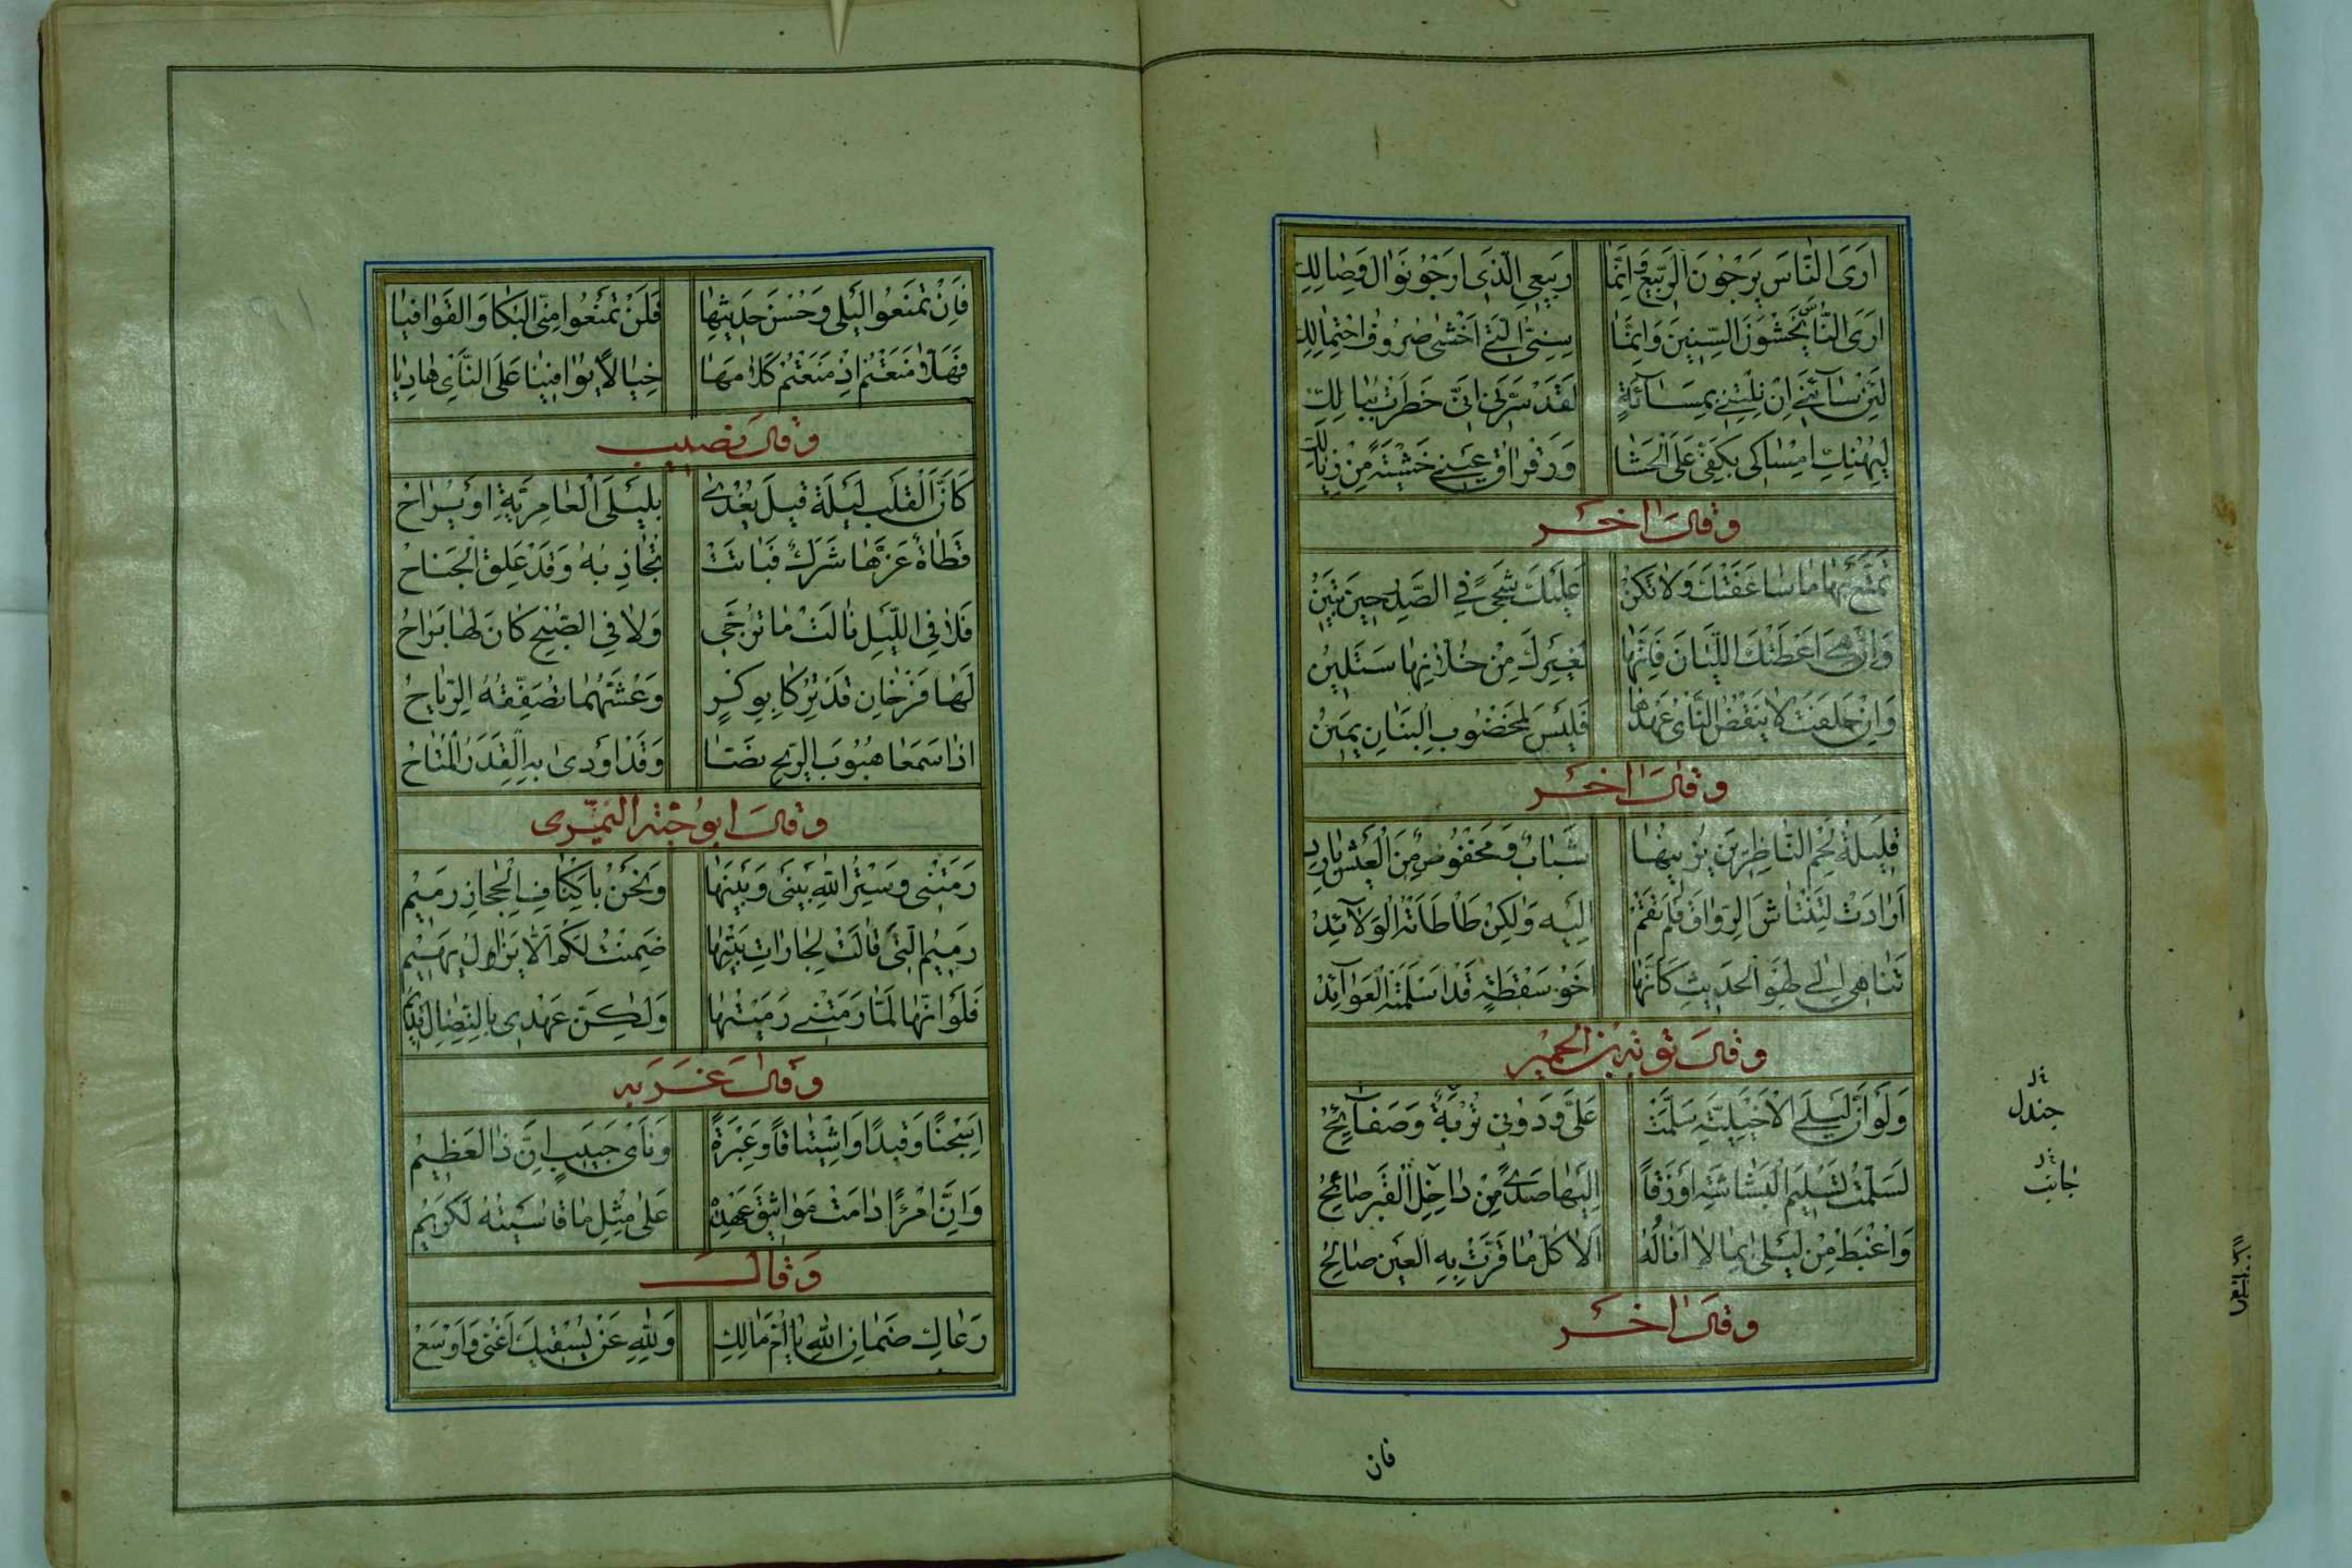 اَرَىَ النّٰاسَ يَرْجُونَ الرَّبيعَ وَ اِنَّمٰا رَبيعِى الَّذى اَرْجُو نَوٰالَ وَصٰالِكِ
اَرَىَ النّٰاسَ يَخْشَوْنَ السِّنِينَ وَاِنَّمٰا سِنِىَّ الَّتى اَخْشىٰ صُرُوفُ احْتِمٰالِكِ
لَئِنْ سٰآئَنى اِنْ نِلْتِنى بِمَسٰآئَةٍ لَقَدْ سَرَّنى اَنّى خَطَرْتُ بِبٰالِكِ
لِيَهْنِكِ اِمْسٰاكى بِكَفّى عَلَى الْحَشٰا وَرَقْرٰاقُ عَيْنى خَشْيَةً مِنْ زِيٰالِكِ
وقال اخر
تَمَتَّعْ بِهٰا مٰا سٰاعَفَتْكَ وَلٰا تَكُنْ عَلَيْكَ شَجىً فِى الصَّدْرِ حينَ تَبينُ
وَاِنْ هِىَ اَعْطَتْكَ اللَّيٰانَ فَاِنَّهٰا لِغَيْرِكَ مِنْ خُلّٰانِهٰا سَتَلينُ
وَاِنْ حَلَفَتْ لٰا يَنْقُضُ النَّأْىُ عَهْدَهٰا فَلَيْسَ لِمَخْضُوبِ الْبَنٰانِ يَمينُ
وقال اخر
قَليلَةُ لَحْمِ النّٰاظِرَيْنِ يُزينُهٰا شَبٰابٌ وَمَخْفُوضٌ مِنَ الْعَيْشِ بٰارِدُ
اَرٰادَتْ لِتَنْتٰاشَ الرِّوٰاقَ فَلَمْ تَقُمْ اِلَيْهِ وَلٰكِنْ طَأْطَأَتْهُ الْوَلٰآئِدُ
تَنٰاهىٰ اِلىٰ لَهْوِ الْحَديثِ كَاَنَّهٰا اَخُو سَقْطَةٍ قَدْ اَسْلَمَتْهُ الْعَوٰآئِدُ
وقال توبة بن الحمير
وَلَوْ اَنَّ لَيْلَى الْاَخْيَلِيَّةَ سَلَّمَتْ عَلَىَّ وَدُونى تُرْبَةٌ وَصَفٰآئِحُ
لَسَلَّمْتُ تَسْليمَ الْبَشٰاشَةِ اَوْزَقٰا اِلَيْهٰا صَدىً مِنْ دٰاخِلِ الْقَبْرِ صٰائِحُ
وَاُغْبَطُ مِنْ لَيْلىٰ بِمٰا لٰا اَنٰالُهُ اَلٰا كُلُّ مٰا قَرَّتْ بِهِ الْعَيْنُ صٰالِحُ
وقال اخر
جندل
جانب
فان
فَاِنْ تَمْنَعُوا لَيْلىٰ وَحُسْنَ حَديثِهٰا فَلَنْ تَمْنَعُوا مِنِّى الْبُكٰا وَ الْقَوٰافِيٰا
فَهَلّٰا مَنَعْتُمْ اِذْ مَنَعْتُمْ كَلٰامَهٰا خِيٰالًا يُوٰافينٰا عَلَى النَّأْىِ هٰادِيٰا
وقال نصيب
كَاَنَّ الْقَلْبَ لَيْلَةَ قيلَ يُغْدىٰ بِلَيْلَى الْعٰامِرِيَّةِ اَوْ يُرٰاحُ
قَطٰاةٌ عَزَّهٰا شَرَكٌ فَبٰاتَتْ تُجٰاذِبُهُ وَقَدْ عَلِقَ الْجَنٰاحُ
فَلٰا فِى اللَّيْلِ نٰالَتْ مٰا تُرَجّى وَلٰا فِى الصُّبْحِ كٰانَ لَهٰا بَرٰاحُ
لَهٰا فَرْخٰانِ قَدْ تُرِكٰا بِوَكْرٍ وَعُشُّهُمٰا تُصَفِّقُهُ الرِّيٰاحُ
اِذٰا سَمَعٰا هُبُوبَ الرّيحِ نَصّٰا وَقَدْ اَوْدىٰ بِهِ الْقَدَرُ الْمُتٰاحُ
وقال ابو حية النميرى
رَمَتْنى وَسِتْرُ اللّٰهِ بَيْنى وَبَيْنَهٰا وَنَحْنُ بِاَكْنٰافِ الْحِجٰازِ رَميمُ
رَميمُ الَّتى قٰالَتْ لِجٰارٰاتِ بَيْتِهٰا ضَمِنْتُ لَكُمْ اَلّٰا يَزٰالُ يَهيمُ
فَلَوْ اَنَّهٰا لَمّٰا رَمَتْنى رَمَيْتُهٰا وَلٰكِنَّ عَهْدى بِالنِّضٰالِ قَديمُ
وقال
اَسِجْنًا وَقَيْدًا وَاشْتِيٰاقًا وَعَبْرَةً وَنَأْىَ حَبيبٍ اِنَّ ذٰا لَعَظيمُ
وَاِنَّ امْرَءًا دٰامَتْ مَوٰاثيقُ عَهْدِهِ عَلىٰ مِثْلِ مٰا قٰاسَيْتُهُ لَكَريمُ
وَقال
رَعٰاكِ ضَمٰانُ اللّٰهِ يٰا اُمَّ مٰالِكٍ وَلِلّٰهُ عَنْ يُسْقيكِ اَغْنىٰ وَاَوْسَعُ